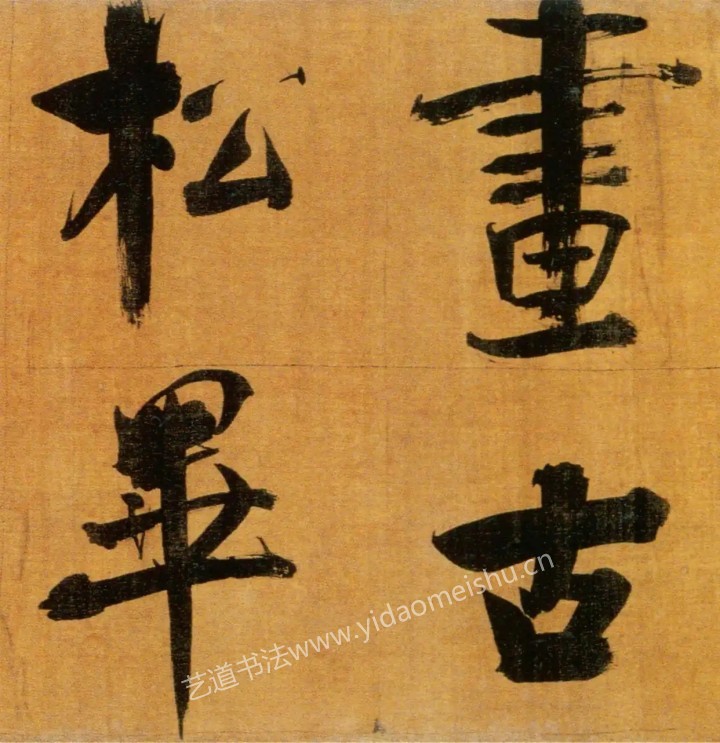 畫古
松畢
艺道书法www.yidaomeishu.cn